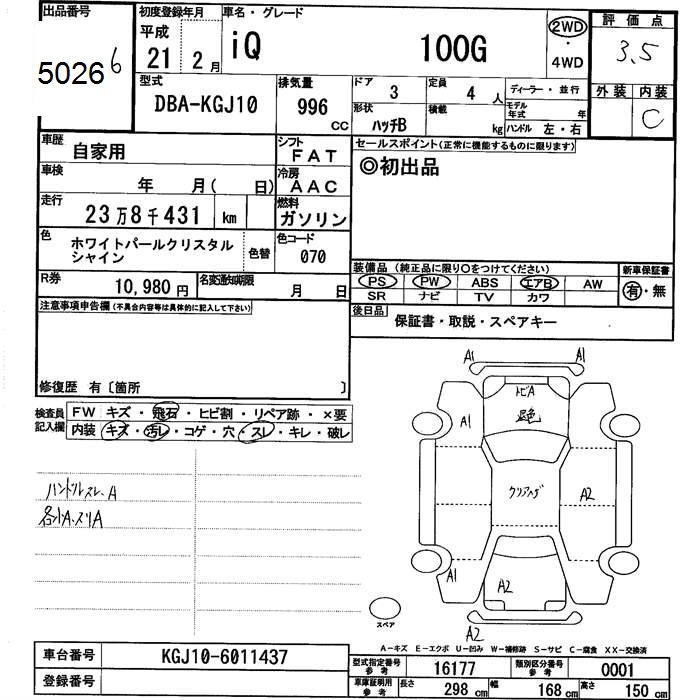 出品番号 初度登録年月 車名・グレード 評価点
50266 平成 21 2月 iQ 100G 2WD・4WD 3.5
型式 排気量 ドア 3 定員 4人 ディーラー・並行 外装 内装
DBA-KGJ10 996 CC 形状 ハッチB 積載 kg モデル年式 年 ハンドル 左・右 C
車歴 自家用 シフト FAT セールスポイント(正常に機能するものに限ります)
◎初出品
車検 年 月( 日) 冷房 AAC
走行 23万8千431 km 燃料 ガソリン
色 ホワイトパールクリスタルシャイン 色替 色コード 070
装備品 (純正品に限り○をつけてください) 新車保証書
PS PW ABS エアB AW 有・無
SR ナビ TV カワ
R券 10,980円 名変通知期限 月 日
後日品 保証書・取説・スペアキー
注意事項申告欄(不具合内容等は具体的に記入して下さい)
修復歴 有〔箇所 〕
検査員記入欄 FW キズ・飛石・ヒビ割・リペア跡・×要
内装 キズ・汚レ・コゲ・穴・スレ・キレ・破レ
ハンドルスレ、A
各外A.スリA
A1 A1
トビA
退色
A1
クリアハゲ A2
A1 A2
A2
スペア
A-キズ E-エクボ U-凹み W-補修跡 S-サビ C-腐食 XX-交換済
車台番号 KGJ10-6011437
型式指定番号 参考 16177 類別区分番号 参考 0001
登録番号
車庫証明用 参考 長さ 298 cm 幅 168 cm 高さ 150 cm